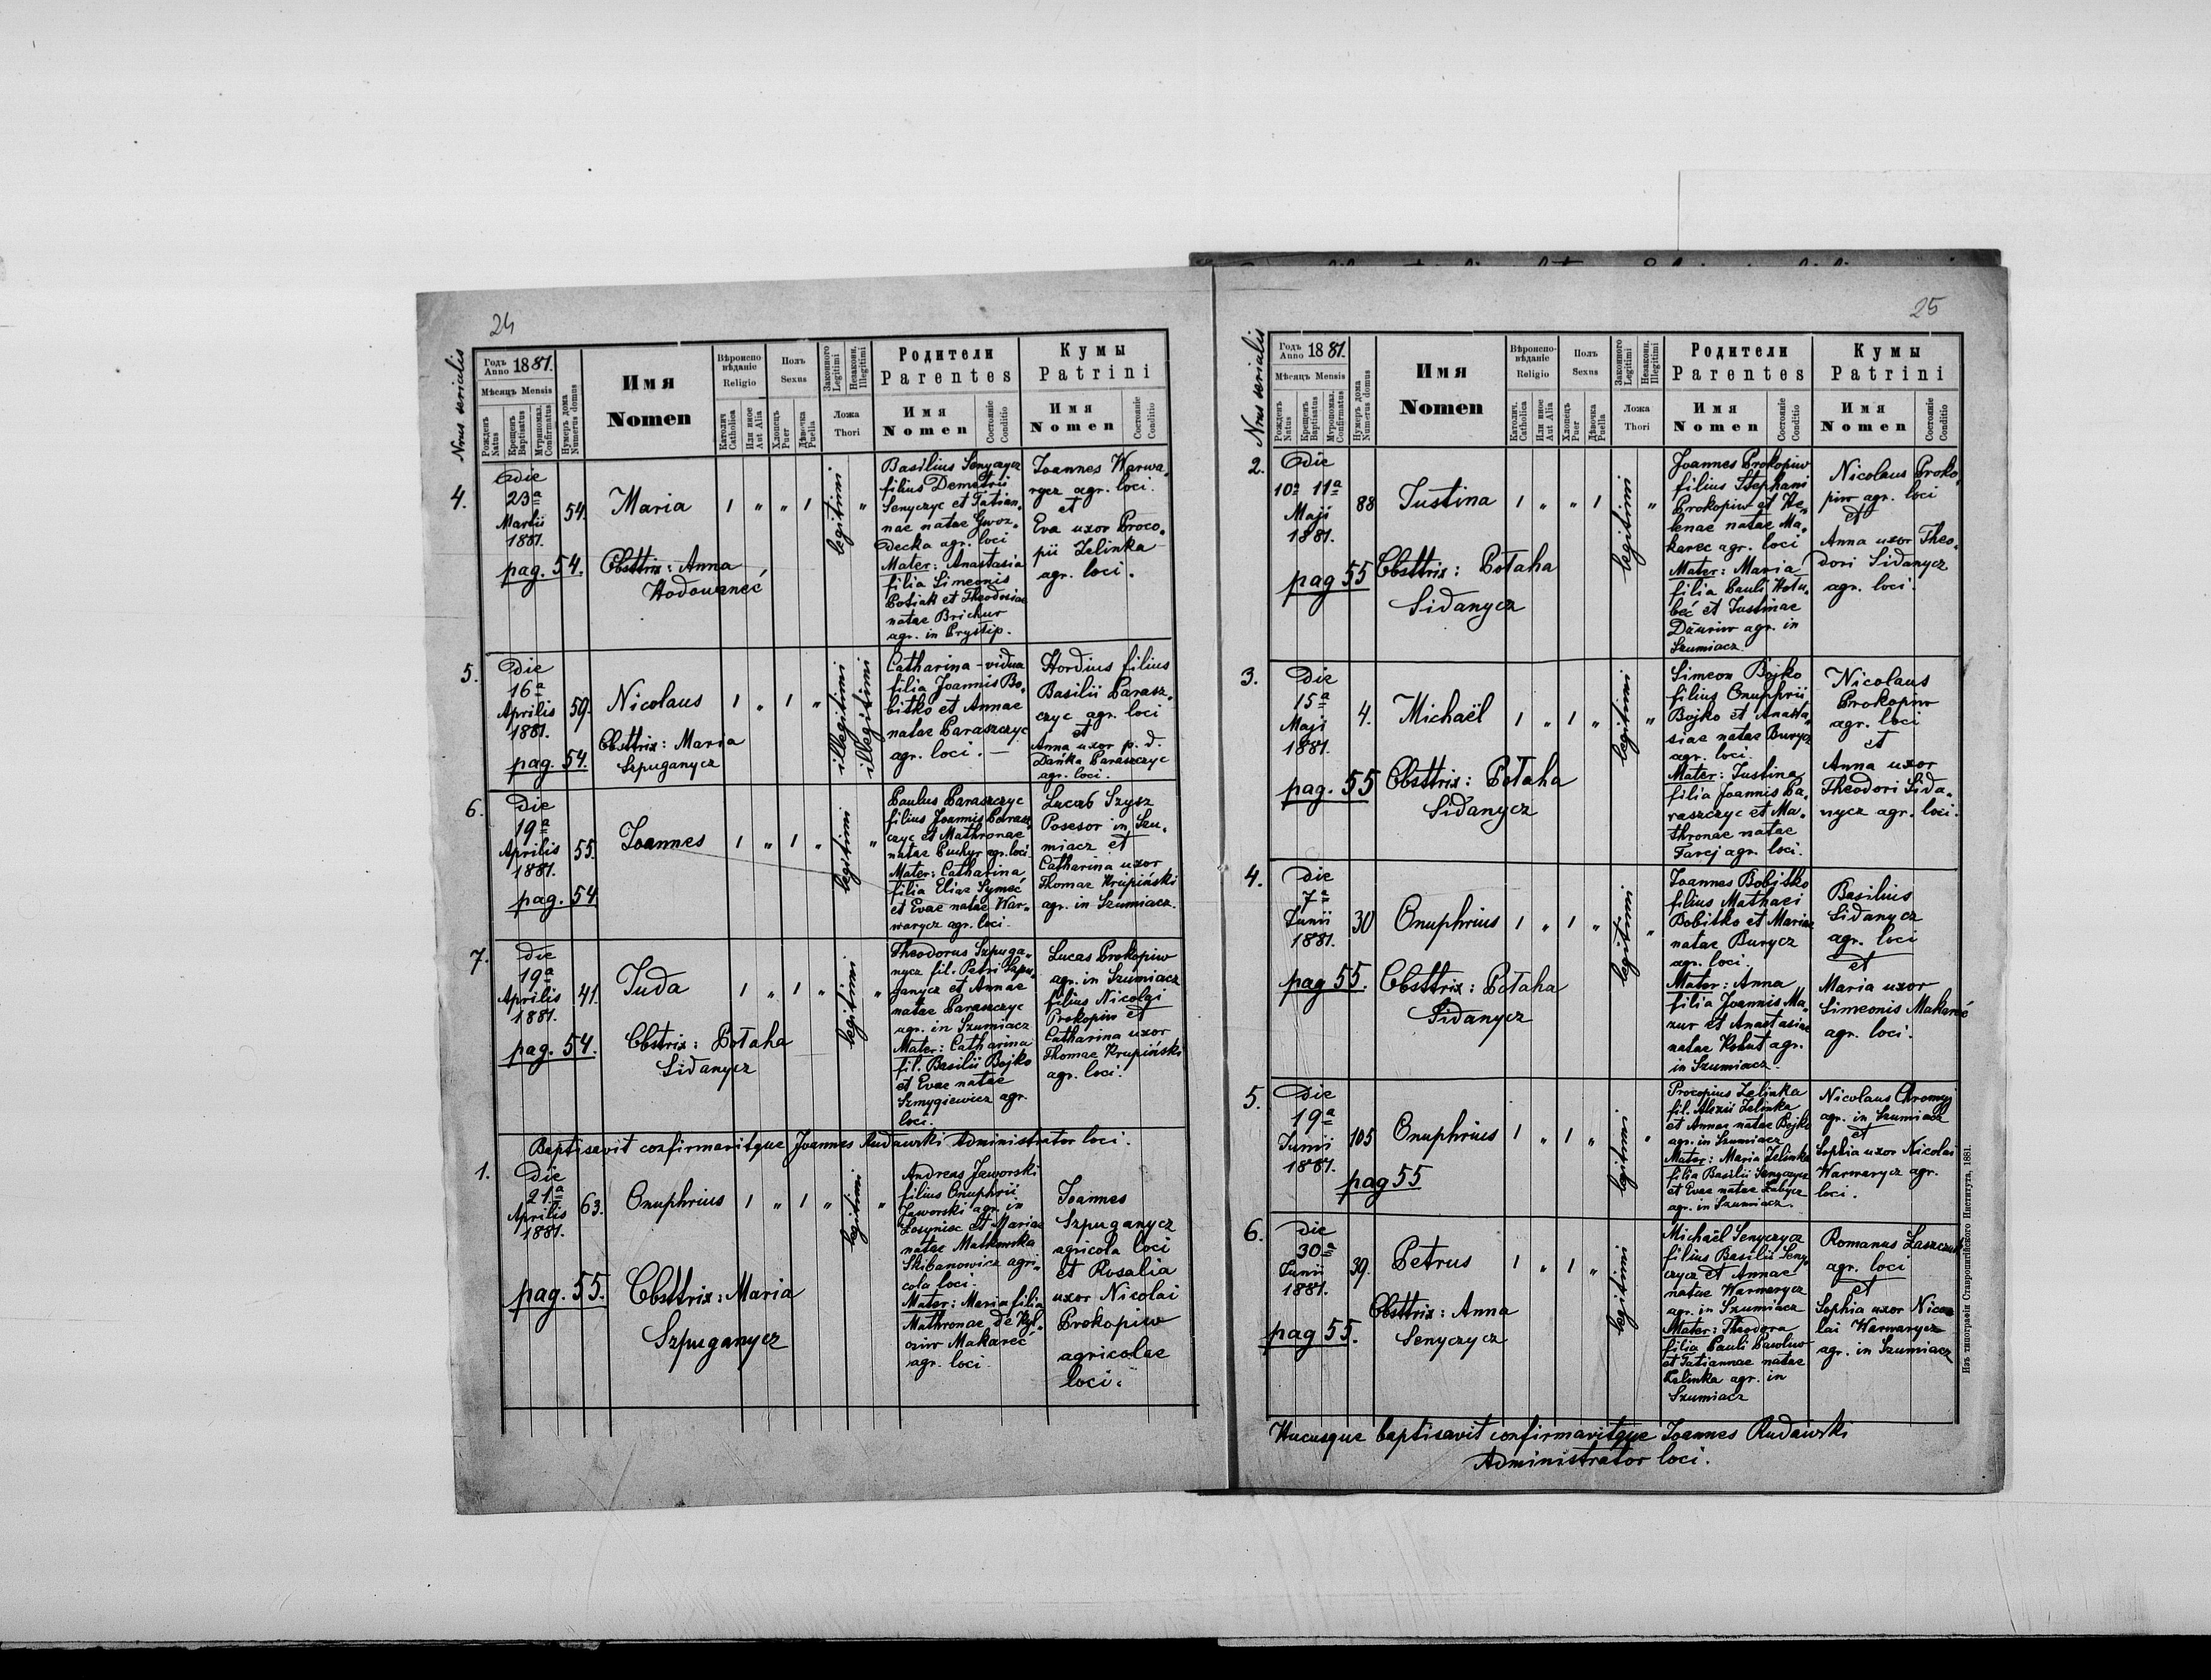 24
Nrus serialis
Годъ Anno 1881.
Мѣсяцъ Mensis
Рожденъ Natus
Крещенъ Baptisatus
Мѵропомаз. Confirmatus
Нумеръ дома Numerus domus
Имя
Nomen
Вѣроисповѣданіе
Religio
Католич Catholica
Или иное Aut Alia
Полъ
Sexus
Хлопецъ Puer
Дѣвочка Puella
Законного Legitimi
Незаконн. Illegitimi
Ложа
Thori
Родители
Parentes
Имя
Nomen
Состояніе Conditio
Кумы
Patrini
Имя
Nomen
Состояніе Conditio
4.
Die
23a
Martii
1881.
pag. 54.
54.
Maria
Obsttrix: Anna
Hodowaneć
1 " " 1
legitimi "
Basilius Senyczycz
filius Demetrii
Senyczyc et Tatian-
nae natae Gwoz-
decka agr. loci
Mater: Anastasia
filia Simeonis
Potiak et Theodosiae
natae Brichur
agr. in Prystip.
Joannes Warwa-
rycz agr. loci.
et
Eva uxor Proco-
pii Zelinka
agr. loci.
5.
Die
16a
Aprilis
1881.
pag. 54.
59.
Nicolaus
Obsttrix: Maria
Szpuganycz
1 " 1 "
illegitimi
illegitimi
Catharina - vidua
filia Joannis Bo-
bitko et Annae
natae Paraszczyc
agr. loci. —
Hordius filius
Basilii Parasz-
czyc agr. loci
et
Anna uxor p. d.
Dańka Paraszczyc
agr. loci.
6.
Die
19a
Aprilis
1881.
pag. 54
55.
Joannes
1 " 1 "
legitimi "
Paulus Paraszczyc
filius Joannis Parasz-
czyc et Mathronae
natae Puchyr agr. loci
Mater: Catharina
filia Eliae Symeć
et Evae natae War-
warycz agr. loci.
Lucas Szysz
Posesor in Szu-
miacz et
Catharina uxor
Thomae Krupiński
agr. in Szumiacz.
7.
Die
19a
Aprilis
1881.
pag. 54.
41.
Juda
Obstrix: Połaha
Sidanycz
1 " 1 "
legitimi "
Theodorus Szpuga-
nycz fil. Petri Szpu-
ganycz et Annae
natae Paraszczyc
agr. in Szumiacz
Mater: Catharina
fil. Basilii Bojko
et Evae natae
Szmygiewicz agr.
loci.
Lucas Prokopiw
agr. in Szumiacz
filius Nicolai
Prokopiw et
Catharina uxor
Thomae Krupiński
agr. loci.
Baptisavit confirmavitque Joannes Rudawski Administrator loci.
1.
Die
21.a
Aprilis
1881.
pag. 55.
63.
Onuphrius
Obsttrix: Maria
Szpuganycz
1 " 1 "
legitimi "
Andreas Jaworski
filius Onuphrii
Jaworski agr. in
Losyniec et Mariae
natae Matkowska
Skibanowicz agri-
cola loci.
Mater: Maria filia
Mathronae de
Makareć
agr. loci
Joannes
Szpuganycz
agricola loci
et Rosalia
uxor Nicolai
Prokopiw
agricolae
loci.
25
Nrus serialis
Годъ Anno 1881.
Мѣсяцъ Mensis
Рожденъ Natus
Крещенъ Baptisatus
Мѵропомаз. Confirmatus
Нумеръ дома Numerus domus
Имя
Nomen
Вѣроисповѣданіе
Religio
Католич. Catholica
Или иное Aut Alia
Полъ
Sexus
Хлопецъ Puer
Дѣвочка Puella
Законного Legitimi
Незаконн. Illegitimi
Ложа
Thori
Родители
Parentes
Имя
Nomen
Состояніе Conditio
Кумы
Patrini
Имя
Nomen
Состояніе Conditio
2.
Die
10a 11a
Maji
1881.
pag 55
88
Justina
Obsttrix: Połaha
Sidanycz
1 " " 1
legitimi "
Joannes Prokopiw
filius Stephani
Prokopiw et He-
lenae natae Ma-
karec agr. loci
Mater: Maria
filia Pauli Hołu-
beć et Justinae
Dżuriw agr. in
Szumiacz.
Nicolaus Proko-
piw agr. loci
et
Anna uxor Theo-
dori Sidanycz
agr. loci.
3.
Die
15a
Maji
1881.
pag. 55
4.
Michaël
Obsttrix: Połaha
Sidanycz
1 " 1 "
legitimi "
Simeon Bojko
filius Onuphrii
Bojko et Anasta-
siae natae Burycz
agr. loci.
Mater: Justina
filia Joannis Pa-
raszczyc et Ma-
thronae natae
Farej agr. loci.
Nicolaus
Prokopiw
agr. loci
et
Anna uxor
Theodori Sida-
nycz agr. loci.
4.
Die
7a
Junii
1881.
pag 55.
30
Onuphrius
Obsttrix: Połaha
Sidanycz
1 " 1 "
legitimi "
Joannes Bobitko
filius Mathaei
Bobitko et Mariae
natae Burycz
agr. loci.
Mater: Anna
filia Joannis Ma-
zur et Anastasiae
natae Kohut agr.
in Szumiacz.
Basilius
Sidanycz
agr. loci
et
Maria uxor
Simeonis Makareć
agr. loci.
5.
Die
19a
Junii
1881.
pag 55
105
Onuphrius
1 " 1 "
legitimi "
Procopius Zelinka
fil. Alexii Zelinka
et Annae natae Bojko
agr. in Szumiacz
Mater: Maria Zelinka
filia Basilii Senyczycz
et Evae natae Labycz
agr. in Szumiacz.
Nicolaus Chromyj
agr. in Szumiacz
et
Sophia uxor Nicolai
Warwarycz agr.
loci.
6.
Die
30a
Junii
1881.
pag 55.
39.
Petrus
Obsttrix: Anna
Senyczycz
1 " 1 "
legitimi
Michaël Senyczycz
filius Basilii Seny-
czycz et Annae
natae Warwarycz
agr. in Szumiacz
Mater: Theodora
filia Pauli Pawliw
et Tatiannae natae
Zelinka agr. in
Szumiacz
Romanus Łaszczuk
agr. loci
et
Sophia uxor Nico-
lai Warwarycz
agr. in Szumiacz
Hucusque baptisavit confirmavitque Joannes Rudawski
Administrator loci.
Изъ типографіи Ставропигійского Института, 1881.